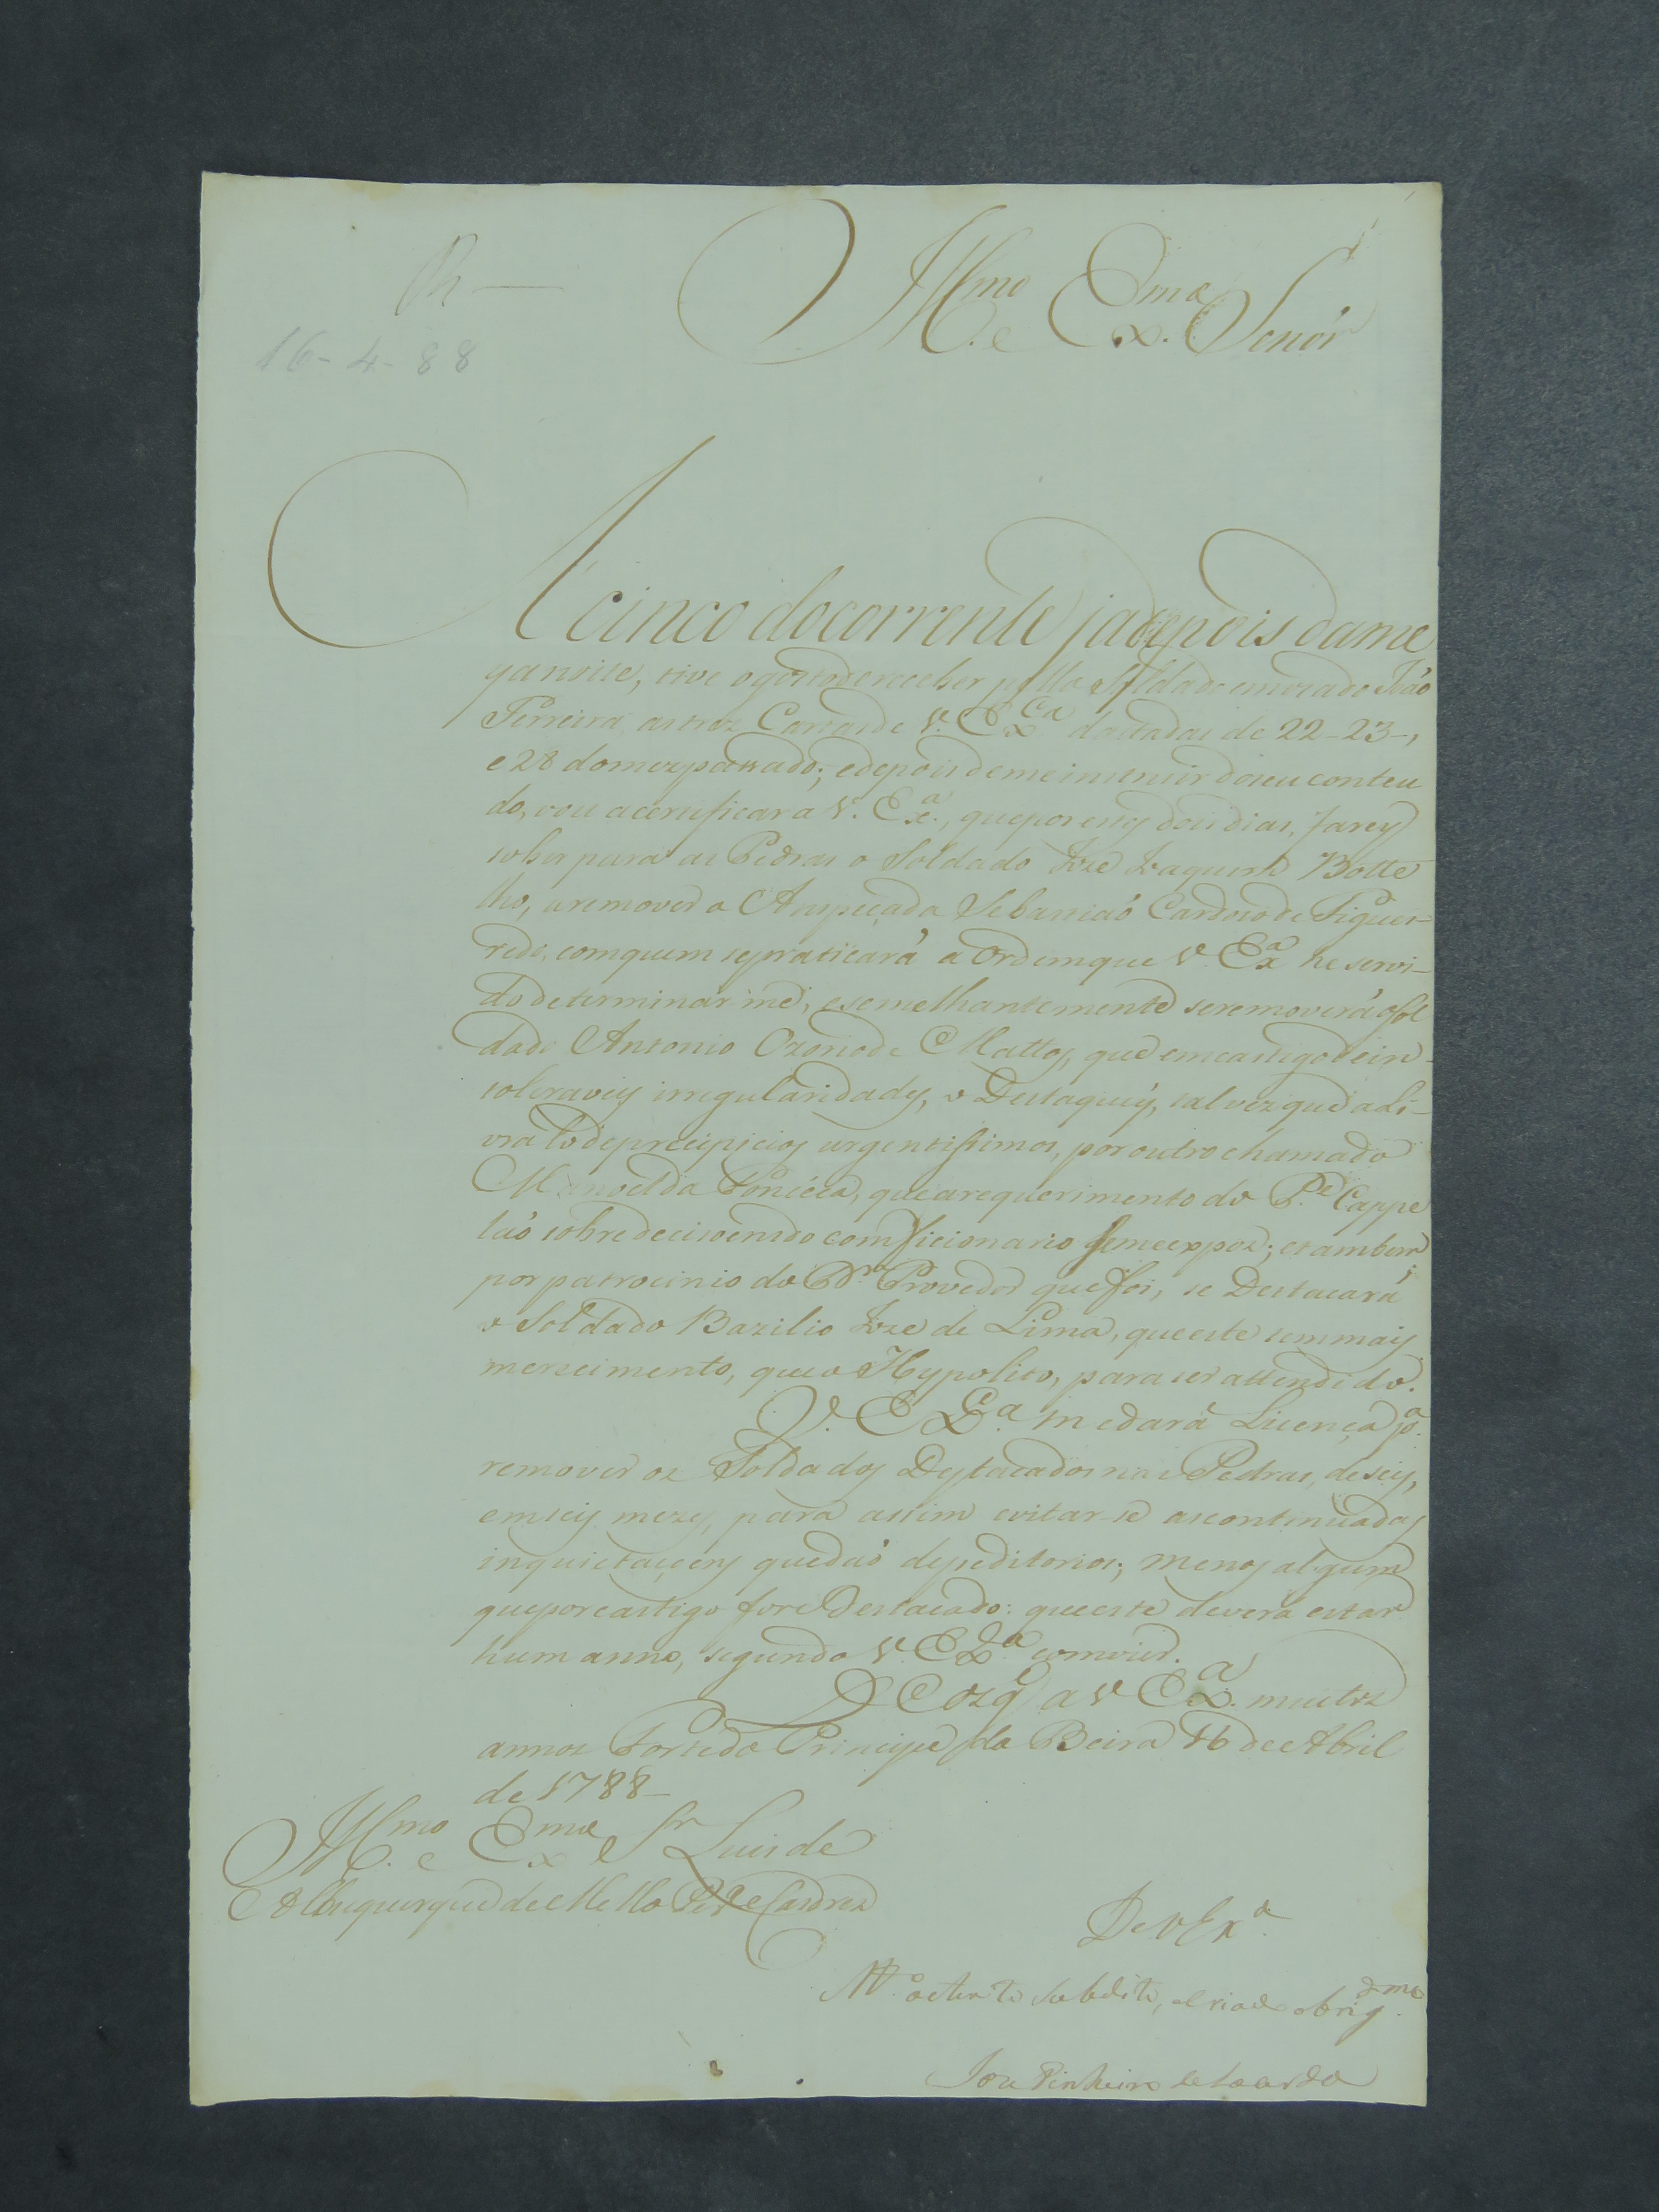 R —
16-4-88
Illmo. e Exmo. Senór
A cinco docorrente jadepois dame
yanoite, tive ogostodereceber pello Soldado emezado Joáo
Ferreira, as trez Cartas de V. Exca dattadas de 22-23-,
e 28 domez passado; edepois de me instruir doseu conteu
do, vou acertificar a V. Exa., que por estes dois dias, farey
sobir para as Pedras o Soldado Joze Joaquim Botte
lho, aremover o Anspeçada Sebastiaó Cardozo de Figuei-
redo, comquem sepraticará a Ordem que V. Exa he servi-
do determinar-me, esemelhantemente seremoverá o Sol
dado Antonio Ozorio de Mattos, que emcastigo de in-
toleraveis irregularidades, o Destaquey, talvez que a li-
vralo de precipicios urgentissimos, por outro chamado
Manoel da Fonceca, que a requerimento do Pe. Cappe
laó sobre
por patrocinio do Dr. Provedor que foi, se Destacará
o Soldado Bazilio Joze de Lima, que este sem mais
merecimento, que o Hypolito, para ser attendido.
V. Exa. me dará Licença pa.
remover os Soldados Destacados nas Pedras, de seis,
em seis mezes, para assim evitar-se as continuadas
inquietaçoens que daó depeditorios; menos algum
que por castigo for Destacado: que este devera estar
hum anno, segundo V. Exa.
Deos gde a V Exa. muitos
annos Forte do Principe da Beira 16 de Abril
de 1788-
Illmo. e Exmo. Sr Luis de
Albuquerque de Mello Pera e Caceres
De V Exa.
Mto. atento subdito, e criado obrigdmo.
Joze Pinheiro de Lacerda